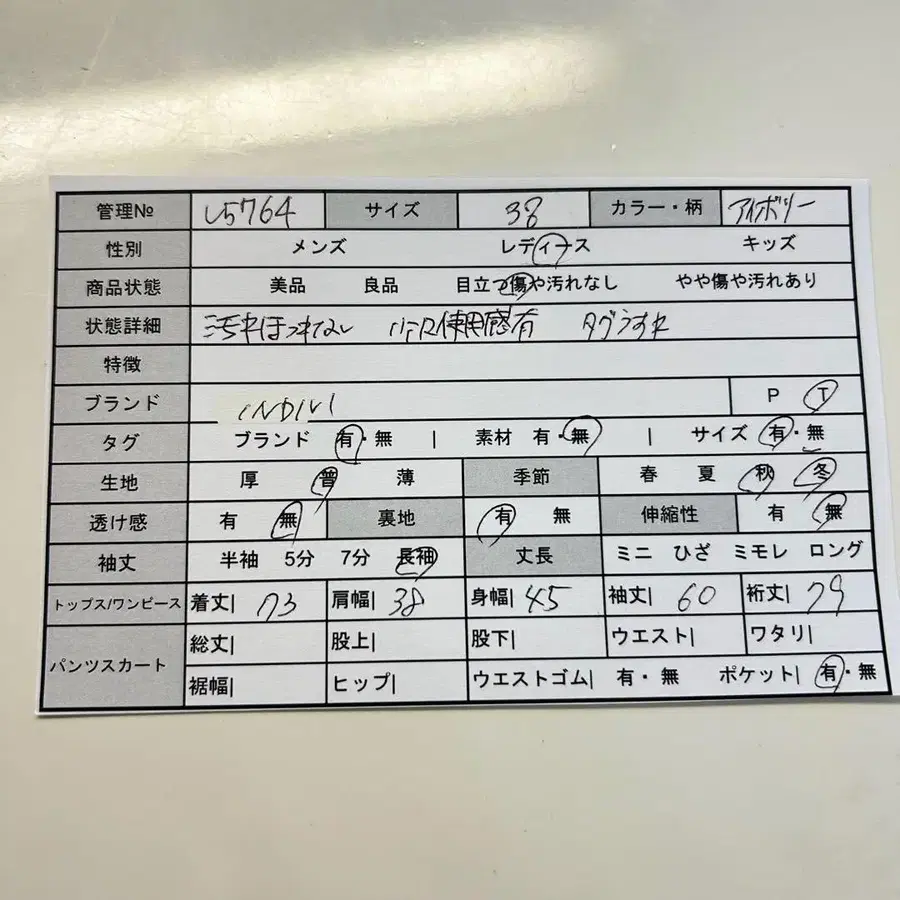 管理№ U5764 サイズ 38 カラー・柄 アイボリー
性別 メンズ レディース キッズ
商品状態 美品 良品 目立つ傷や汚れなし やや傷や汚れあり
状態詳細 汚れほつれなし 使用感有 タグうすれ
特徴
ブランド INDIVI P T
タグ ブランド 有・無 | 素材 有・無 | サイズ 有・無
生地 厚 普 薄 季節 春 夏 秋 冬
透け感 有 無 裏地 有 無 伸縮性 有 無
袖丈 半袖 5分 7分 長袖 丈長 ミニ ひざ ミモレ ロング
トップス/ワンピース 着丈| 73 肩幅| 38 身幅| 45 袖丈| 60 裄丈| 79
パンツスカート 総丈| 股上| 股下| ウエスト| ワタリ|
裾幅| ヒップ| ウエストゴム| 有・無 ポケット| 有・無